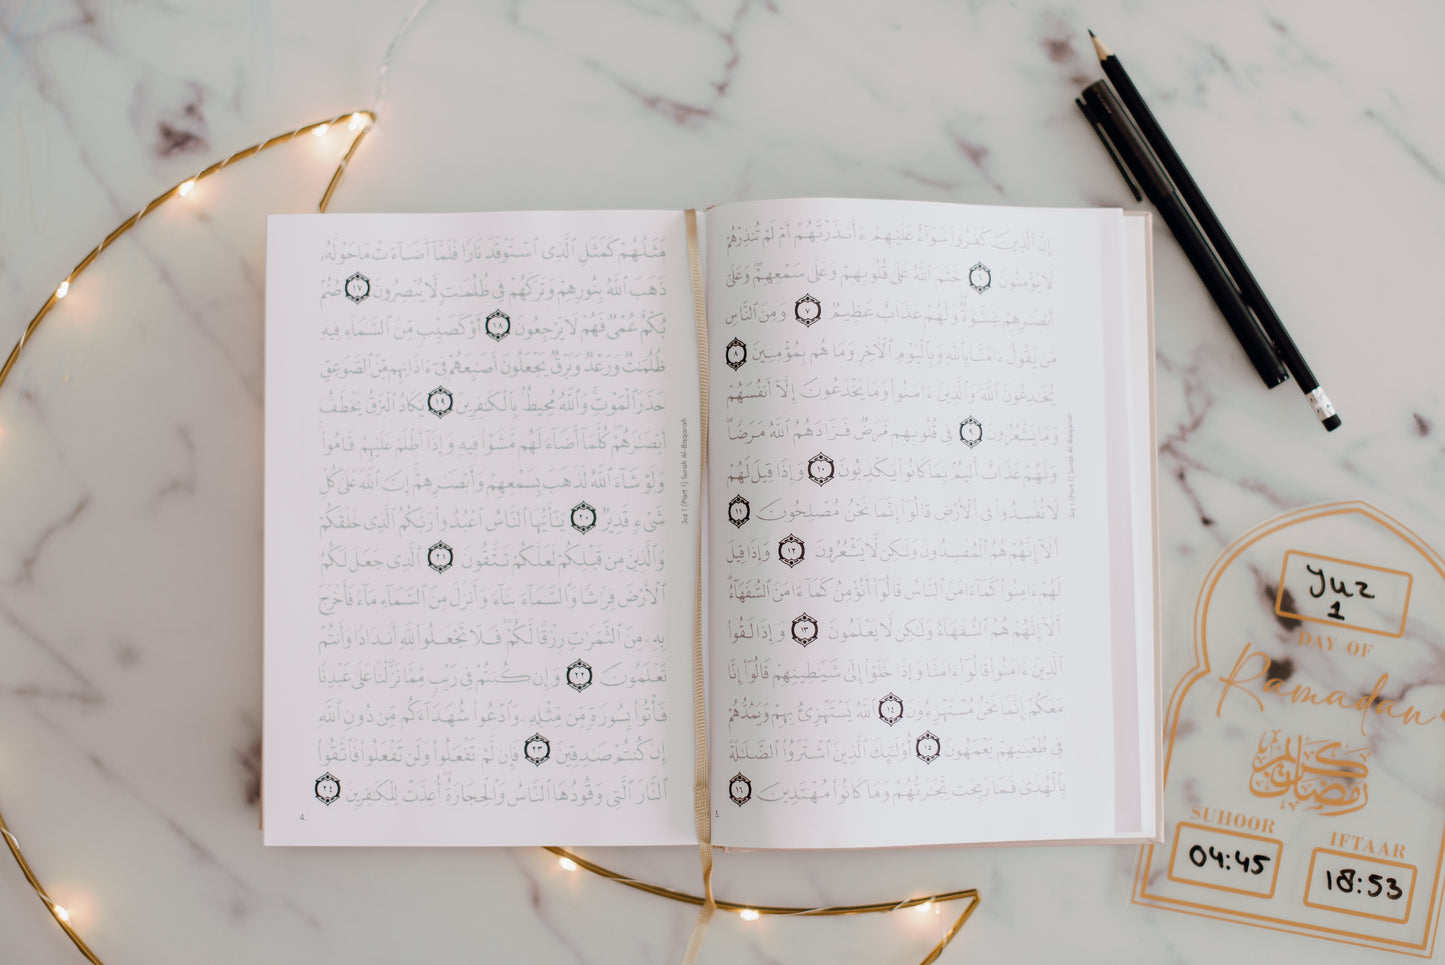 إِنَّ ٱلَّذِينَ كَفَرُوا۟ سَوَآءٌ عَلَيْهِمْ ءَأَنذَرْتَهُمْ أَمْ لَمْ تُنذِرْهُمْ
لَا يُؤْمِنُونَ ٦ خَتَمَ ٱللَّهُ عَلَىٰ قُلُوبِهِمْ وَعَلَىٰ سَمْعِهِمْ ۖ وَعَلَىٰٓ
أَبْصَـٰرِهِمْ غِشَـٰوَةٌ ۖ وَلَهُمْ عَذَابٌ عَظِيمٌ ٧ وَمِنَ ٱلنَّاسِ
مَن يَقُولُ ءَامَنَّا بِٱللَّهِ وَبِٱلْيَوْمِ ٱلْـَٔاخِرِ وَمَا هُم بِمُؤْمِنِينَ ٨
يُخَـٰدِعُونَ ٱللَّهَ وَٱلَّذِينَ ءَامَنُوا۟ وَمَا يَخْدَعُونَ إِلَّآ أَنفُسَهُمْ
وَمَا يَشْعُرُونَ ٩ فِى قُلُوبِهِم مَّرَضٌ فَزَادَهُمُ ٱللَّهُ مَرَضًا ۖ
وَلَهُمْ عَذَابٌ أَلِيمٌۢ بِمَا كَانُوا۟ يَكْذِبُونَ ١٠ وَإِذَا قِيلَ لَهُمْ
لَا تُفْسِدُوا۟ فِى ٱلْأَرْضِ قَالُوٓا۟ إِنَّمَا نَحْنُ مُصْلِحُونَ ١١
أَلَآ إِنَّهُمْ هُمُ ٱلْمُفْسِدُونَ وَلَـٰكِن لَّا يَشْعُرُونَ ١٢ وَإِذَا قِيلَ
لَهُمْ ءَامِنُوا۟ كَمَآ ءَامَنَ ٱلنَّاسُ قَالُوٓا۟ أَنُؤْمِنُ كَمَآ ءَامَنَ ٱلسُّفَهَآءُ ۗ
أَلَآ إِنَّهُمْ هُمُ ٱلسُّفَهَآءُ وَلَـٰكِن لَّا يَعْلَمُونَ ١٣ وَإِذَا لَقُوا۟
ٱلَّذِينَ ءَامَنُوا۟ قَالُوٓا۟ ءَامَنَّا وَإِذَا خَلَوْا۟ إِلَىٰ شَيَـٰطِينِهِمْ قَالُوٓا۟ إِنَّا
مَعَكُمْ إِنَّمَا نَحْنُ مُسْتَهْزِءُونَ ١٤ ٱللَّهُ يَسْتَهْزِئُ بِهِمْ وَيَمُدُّهُمْ
فِى طُغْيَـٰنِهِمْ يَعْمَهُونَ ١٥ أُو۟لَـٰٓئِكَ ٱلَّذِينَ ٱشْتَرَوُا۟ ٱلضَّلَـٰلَةَ
بِٱلْهُدَىٰ فَمَا رَبِحَت تِّجَـٰرَتُهُمْ وَمَا كَانُوا۟ مُهْتَدِينَ ١٦
3.
Juz 1 (Part 1) Surah Al-Baqarah
مَثَلُهُمْ كَمَثَلِ ٱلَّذِى ٱسْتَوْقَدَ نَارًا فَلَمَّآ أَضَآءَتْ مَا حَوْلَهُۥ
ذَهَبَ ٱللَّهُ بِنُورِهِمْ وَتَرَكَهُمْ فِى ظُلُمَـٰتٍ لَّا يُبْصِرُونَ ١٧ صُمٌّۢ
بُكْمٌ عُمْىٌ فَهُمْ لَا يَرْجِعُونَ ١٨ أَوْ كَصَيِّبٍ مِّنَ ٱلسَّمَآءِ فِيهِ
ظُلُمَـٰتٌ وَرَعْدٌ وَبَرْقٌ يَجْعَلُونَ أَصَـٰبِعَهُمْ فِىٓ ءَاذَانِهِم مِّنَ ٱلصَّوَٰعِقِ
حَذَرَ ٱلْمَوْتِ ۚ وَٱللَّهُ مُحِيطٌۢ بِٱلْكَـٰفِرِينَ ١٩ يَكَادُ ٱلْبَرْقُ يَخْطَفُ
أَبْصَـٰرَهُمْ ۖ كُلَّمَآ أَضَآءَ لَهُم مَّشَوْا۟ فِيهِ وَإِذَآ أَظْلَمَ عَلَيْهِمْ قَامُوا۟ ۚ
وَلَوْ شَآءَ ٱللَّهُ لَذَهَبَ بِسَمْعِهِمْ وَأَبْصَـٰرِهِمْ ۚ إِنَّ ٱللَّهَ عَلَىٰ كُلِّ
شَىْءٍ قَدِيرٌ ٢٠ يَـٰٓأَيُّهَا ٱلنَّاسُ ٱعْبُدُوا۟ رَبَّكُمُ ٱلَّذِى خَلَقَكُمْ
وَٱلَّذِينَ مِن قَبْلِكُمْ لَعَلَّكُمْ تَتَّقُونَ ٢١ ٱلَّذِى جَعَلَ لَكُمُ
ٱلْأَرْضَ فِرَٰشًا وَٱلسَّمَآءَ بِنَآءً وَأَنزَلَ مِنَ ٱلسَّمَآءِ مَآءً فَأَخْرَجَ
بِهِۦ مِنَ ٱلثَّمَرَٰتِ رِزْقًا لَّكُمْ ۖ فَلَا تَجْعَلُوا۟ لِلَّهِ أَندَادًا وَأَنتُمْ
تَعْلَمُونَ ٢٢ وَإِن كُنتُمْ فِى رَيْبٍ مِّمَّا نَزَّلْنَا عَلَىٰ عَبْدِنَا
فَأْتُوا۟ بِسُورَةٍ مِّن مِّثْلِهِۦ وَٱدْعُوا۟ شُهَدَآءَكُم مِّن دُونِ ٱللَّهِ
إِن كُنتُمْ صَـٰدِقِينَ ٢٣ فَإِن لَّمْ تَفْعَلُوا۟ وَلَن تَفْعَلُوا۟ فَٱتَّقُوا۟
ٱلنَّارَ ٱلَّتِى وَقُودُهَا ٱلنَّاسُ وَٱلْحِجَارَةُ ۖ أُعِدَّتْ لِلْكَـٰفِرِينَ ٢٤
4.
Juz 1 (Part 1) Surah Al-Baqarah
Juz
1
DAY OF
Ramadan
رمضان كريم
SUHOOR
04:45
IFTAAR
18:53